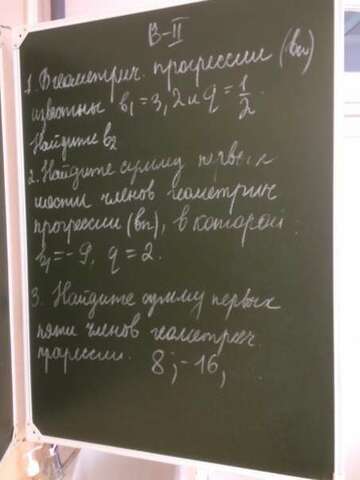 В-II
1. В геометрич. прогрессии (bn)
известны b1=3,2 и q=1/2.
Найдите b2
2. Найдите сумму первых
шести членов геометрич
прогрессии (bn), в которой:
b1=-9, q=2.
3. Найдите сумму первых
пяти членов геометрич.
прогрессии. 8; -16,